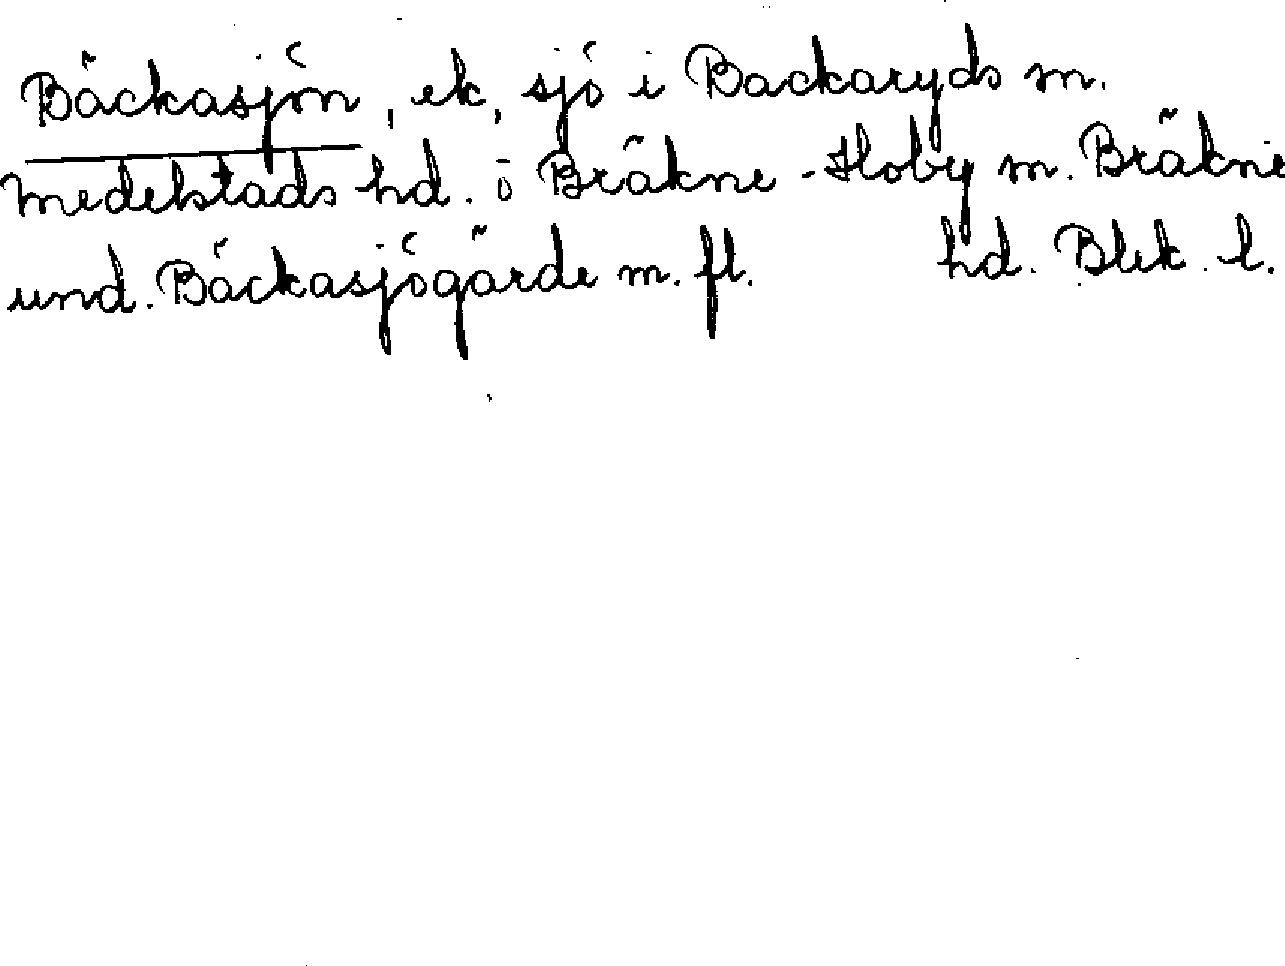 Bäckasjön, ek, sjö i Backaryds sn.
Medelstads hd. o Bräkne-Hoby sn. Bräkne
und. Bäckasjögärde m. fl. hd. Blek. l.